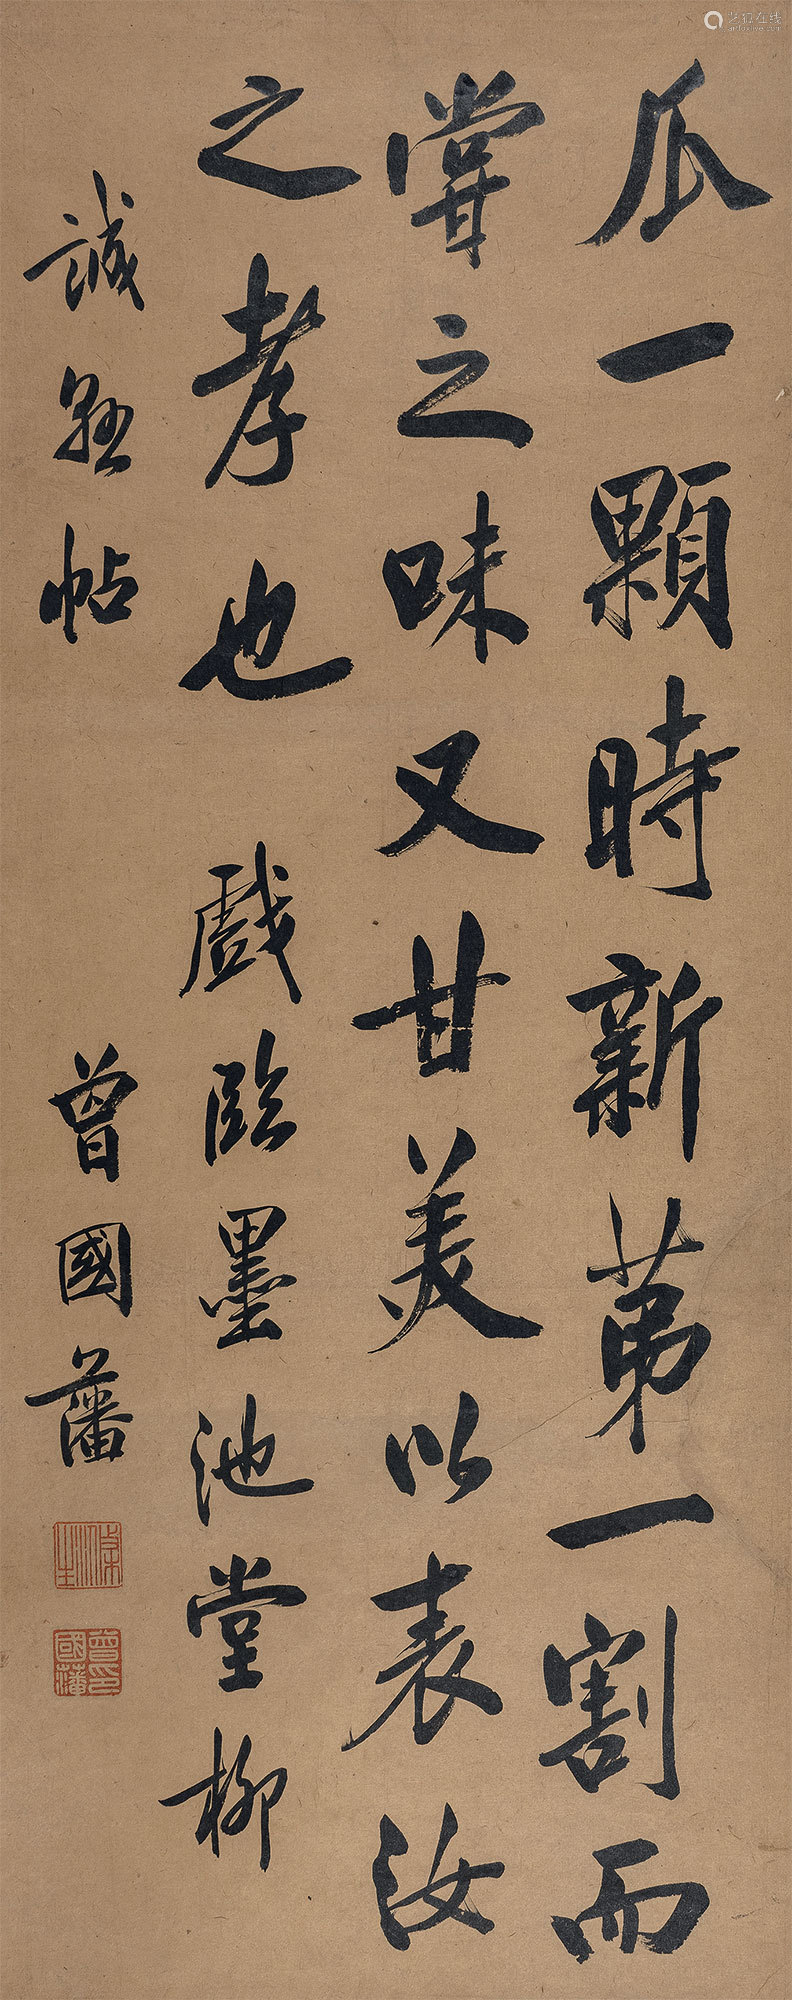 瓜一顆時新第一割而
嘗之味又甘美以表汝
之孝也 戲臨墨池堂柳
誠懸帖 曾國藩
曾國藩印